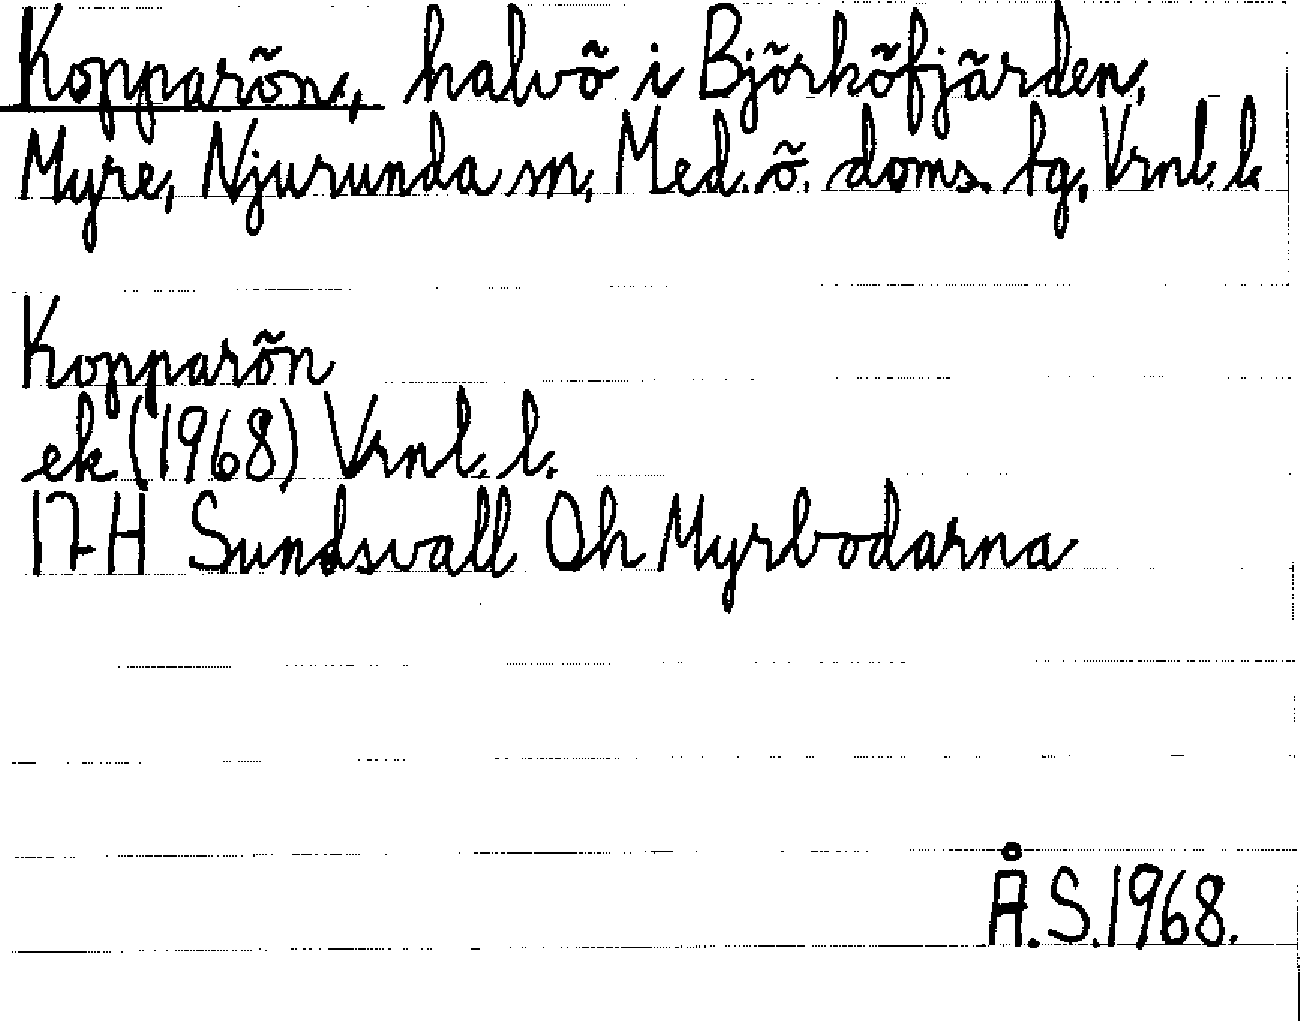 Kopparön, halvö i Björköfjärden,
Myre, Njurunda sn, Med. ö. doms. tg, Vrnl. l.
Kopparön
ek (1968) Vrnl. l.
17 H Sundsvall Oh Myrbodarna
Å.S.1968.